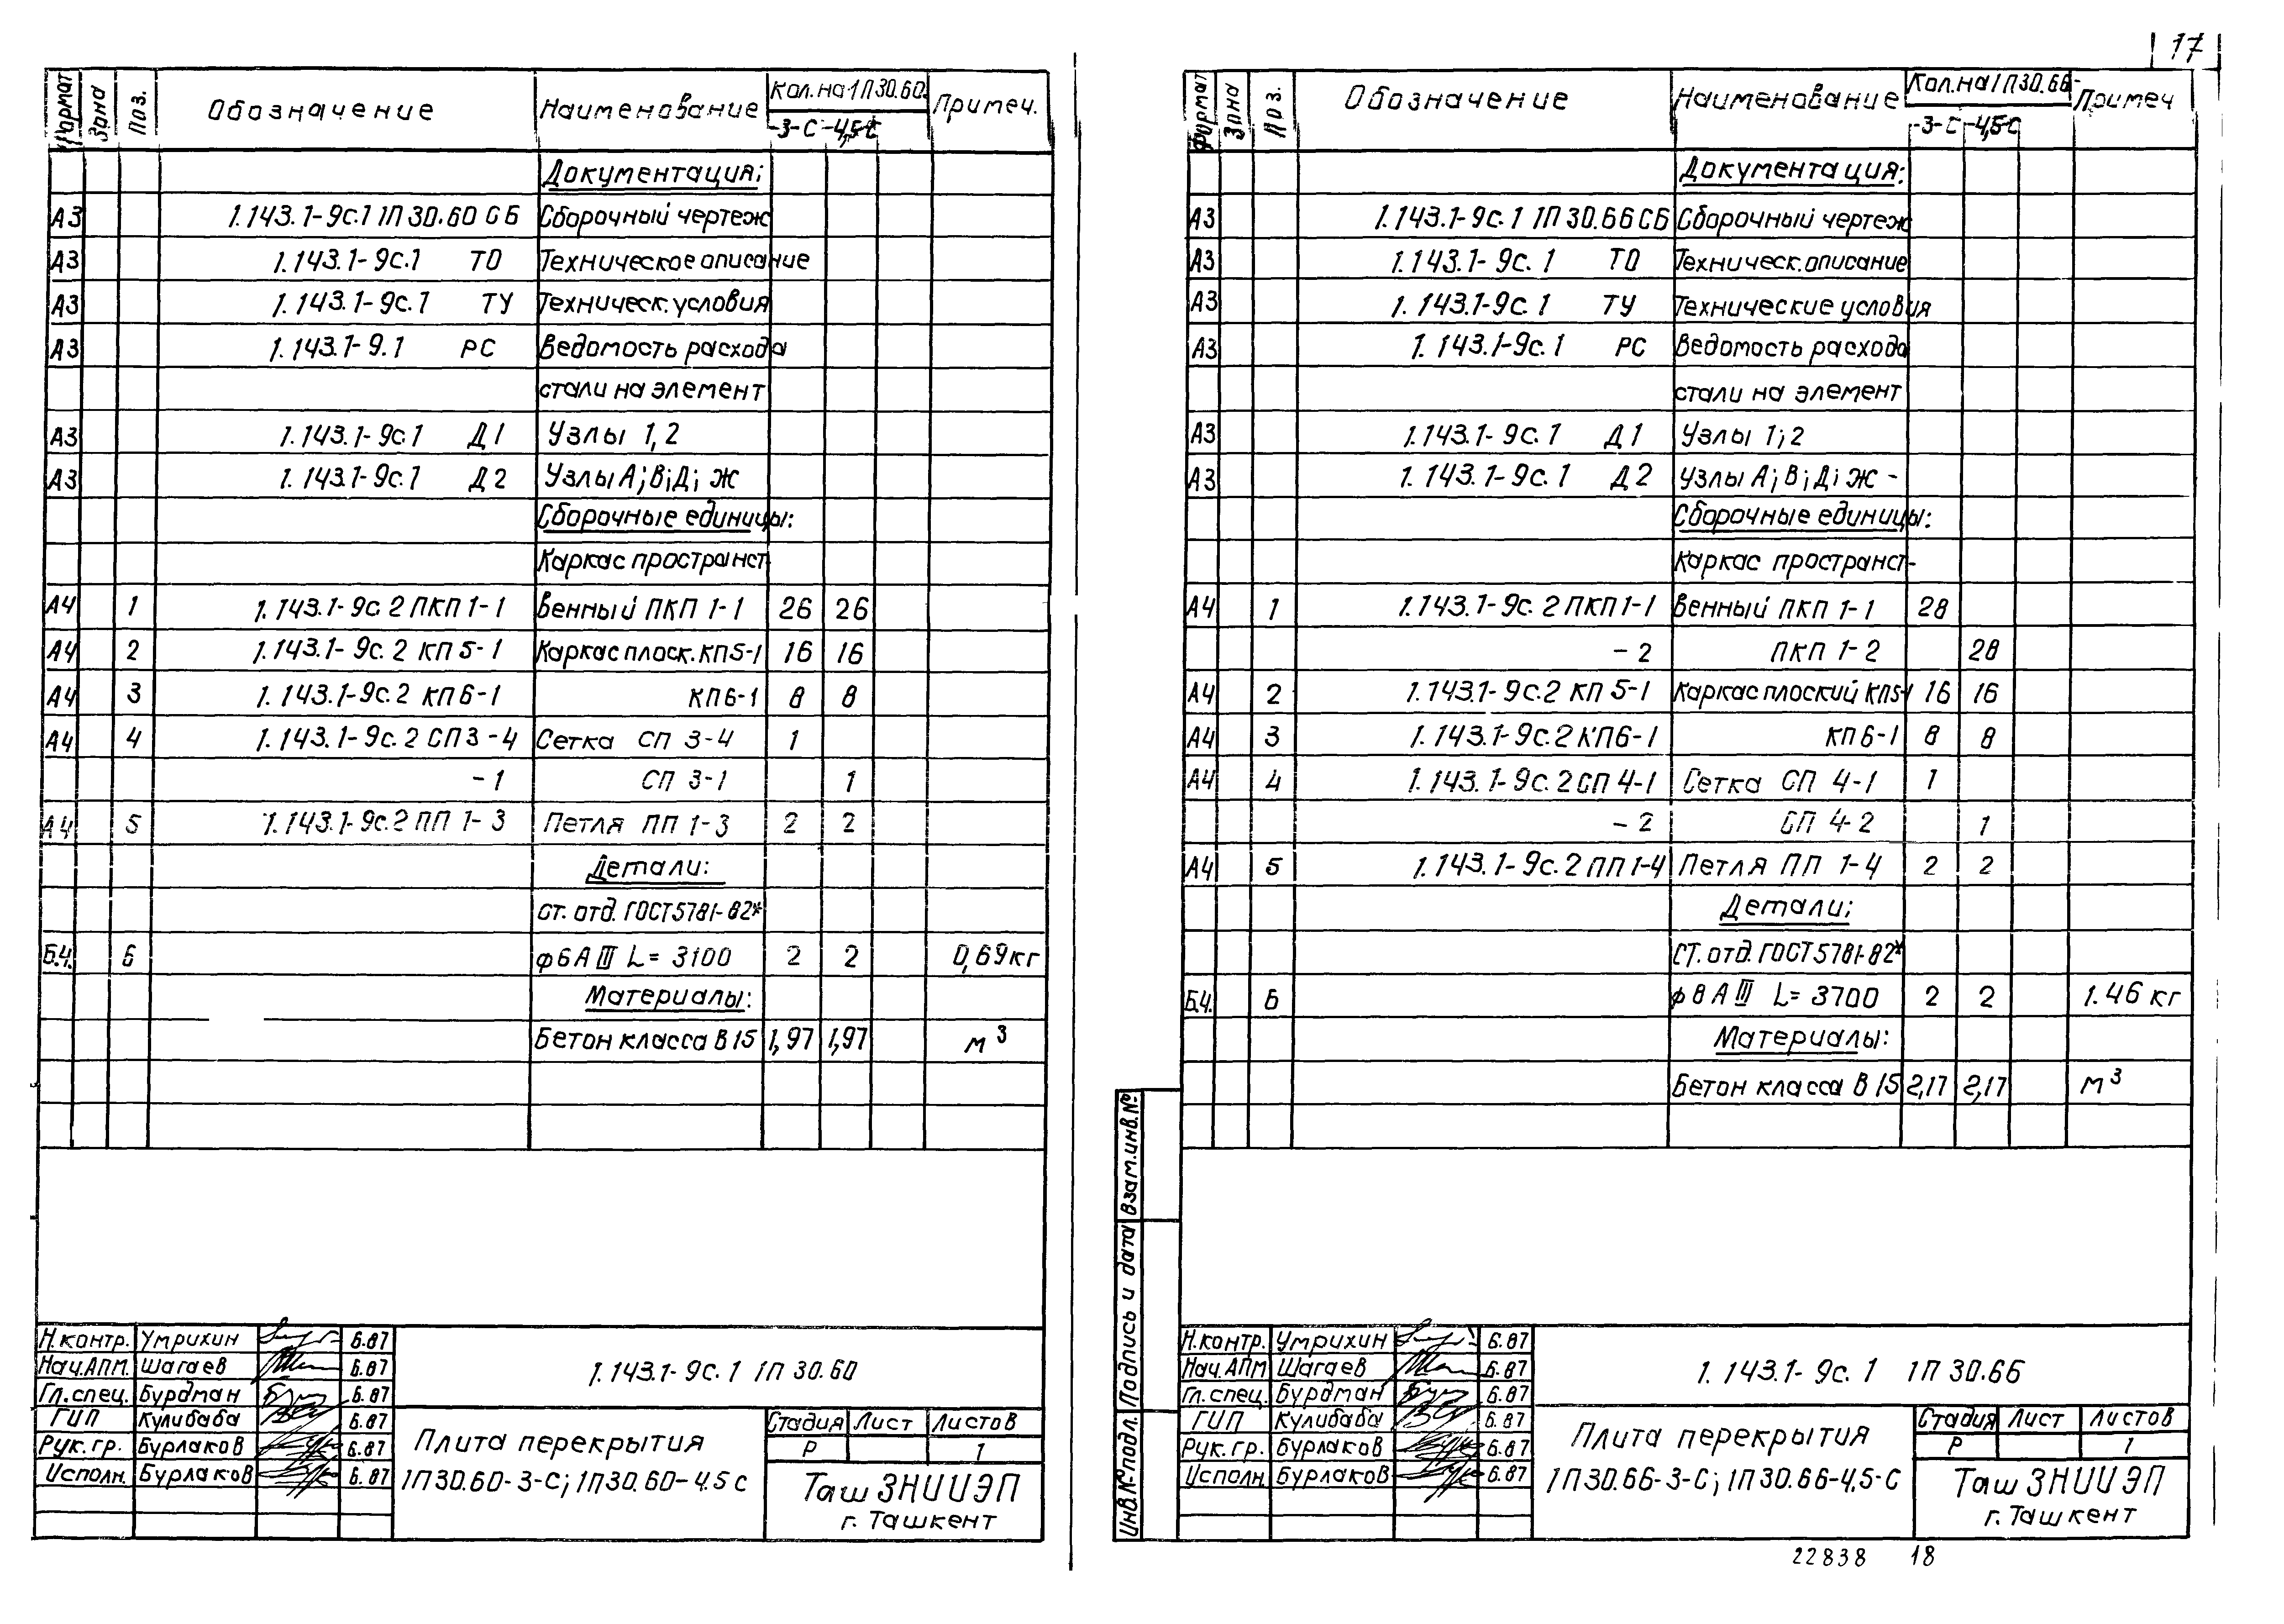 17
Формат Зона Поз. Обозначение Наименование Кол.на 1П30.60- Примеч.
-3-С -4,5-С
Документация:
А3 1.143.1-9с.1 1П30.60 СБ Сборочный чертеж
А3 1.143.1-9с.1 ТО Техническое описание
А3 1.143.1-9с.1 ТУ Техническ. условия
А3 1.143.1-9.1 РС Ведомость расхода
стали на элемент
А3 1.143.1-9с.1 Д1 Узлы 1,2
А3 1.143.1-9с.1 Д2 Узлы А;В;Д; Ж
Сборочные единицы:
Каркас пространст-
А4 1 1.143.1-9с.2 ПКП1-1 венный ПКП 1-1 26 26
А4 2 1.143.1-9с.2 КП5-1 Каркас плоск. КП5-1 16 16
А4 3 1.143.1-9с.2 КП6-1 КП6-1 8 8
А4 4 1.143.1-9с.2 СП3-4 Сетка СП 3-4 1
-1 СП 3-1 1
А4 5 1.143.1-9с.2 ПП 1-3 Петля ПП 1-3 2 2
Детали:
Ст. отд. ГОСТ5781-82*
Б.4. 6 ф6АIII L=3100 2 2 0,69кг
Материалы:
Бетон класса В15 1,97 1,97 м³
Н.контр. Умрихин 6.87
Нач.АПМ. Шагаев 6.87
Гл.спец. Бурдман 6.87
ГИП Кулибаба 6.87
Рук.гр. Бурлаков 6.87
Исполн. Бурлаков 6.87
1.143.1-9с.1 1П 30.60
Плита перекрытия
1П30.60-3-С; 1П30.60-4.5с
Стадия Лист Листов
Р 1
ТашЗНИИЭП
г. Ташкент
Формат Зона Поз. Обозначение Наименование Кол.на 1П30.66- Примеч
-3-С -4,5-С
Документация:
А3 1.143.1-9с.1 1П30.66СБ Сборочный чертеж
А3 1.143.1-9с.1 ТО Техническ.описание
А3 1.143.1-9с.1 ТУ Технические условия
А3 1.143.1-9с.1 РС Ведомость расхода
стали на элемент
А3 1.143.1-9с.1 Д1 Узлы 1;2
А3 1.143.1-9с.1 Д2 Узлы А;В;Д;Ж -
Сборочные единицы:
Каркас пространст-
А4 1 1.143.1-9с.2 ПКП1-1 венный ПКП 1-1 28
-2 ПКП 1-2 28
А4 2 1.143.1-9с.2 КП5-1 Каркас плоский КП5-1 16 16
А4 3 1.143.1-9с.2 КП6-1 КП6-1 8 8
А4 4 1.143.1-9с.2 СП 4-1 Сетка СП 4-1 1
-2 СП 4-2 1
А4 5 1.143.1-9с.2 ПП1-4 Петля ПП 1-4 2 2
Детали:
Ст. отд. ГОСТ5781-82*
Б.4. 6 ф8АIII L=3700 2 2 1.46 кг
Материалы:
Бетон класса В15 2,17 2,17 м³
Взам.инв.№
Подпись и дата
Инв.№подл.
Н.контр. Умрихин 6.87
Нач.АПМ Шагаев 6.87
Гл.спец. Бурдман 6.87
ГИП Кулибаба 6.87
Рук.гр. Бурлаков 6.87
Исполн. Бурлаков 6.87
1.143.1-9с.1 1П 30.66
Плита перекрытия
1П30.66-3-С; 1П30.66-4,5-С
Стадия Лист Листов
Р 1
ТашЗНИИЭП
г. Ташкент
22838 18